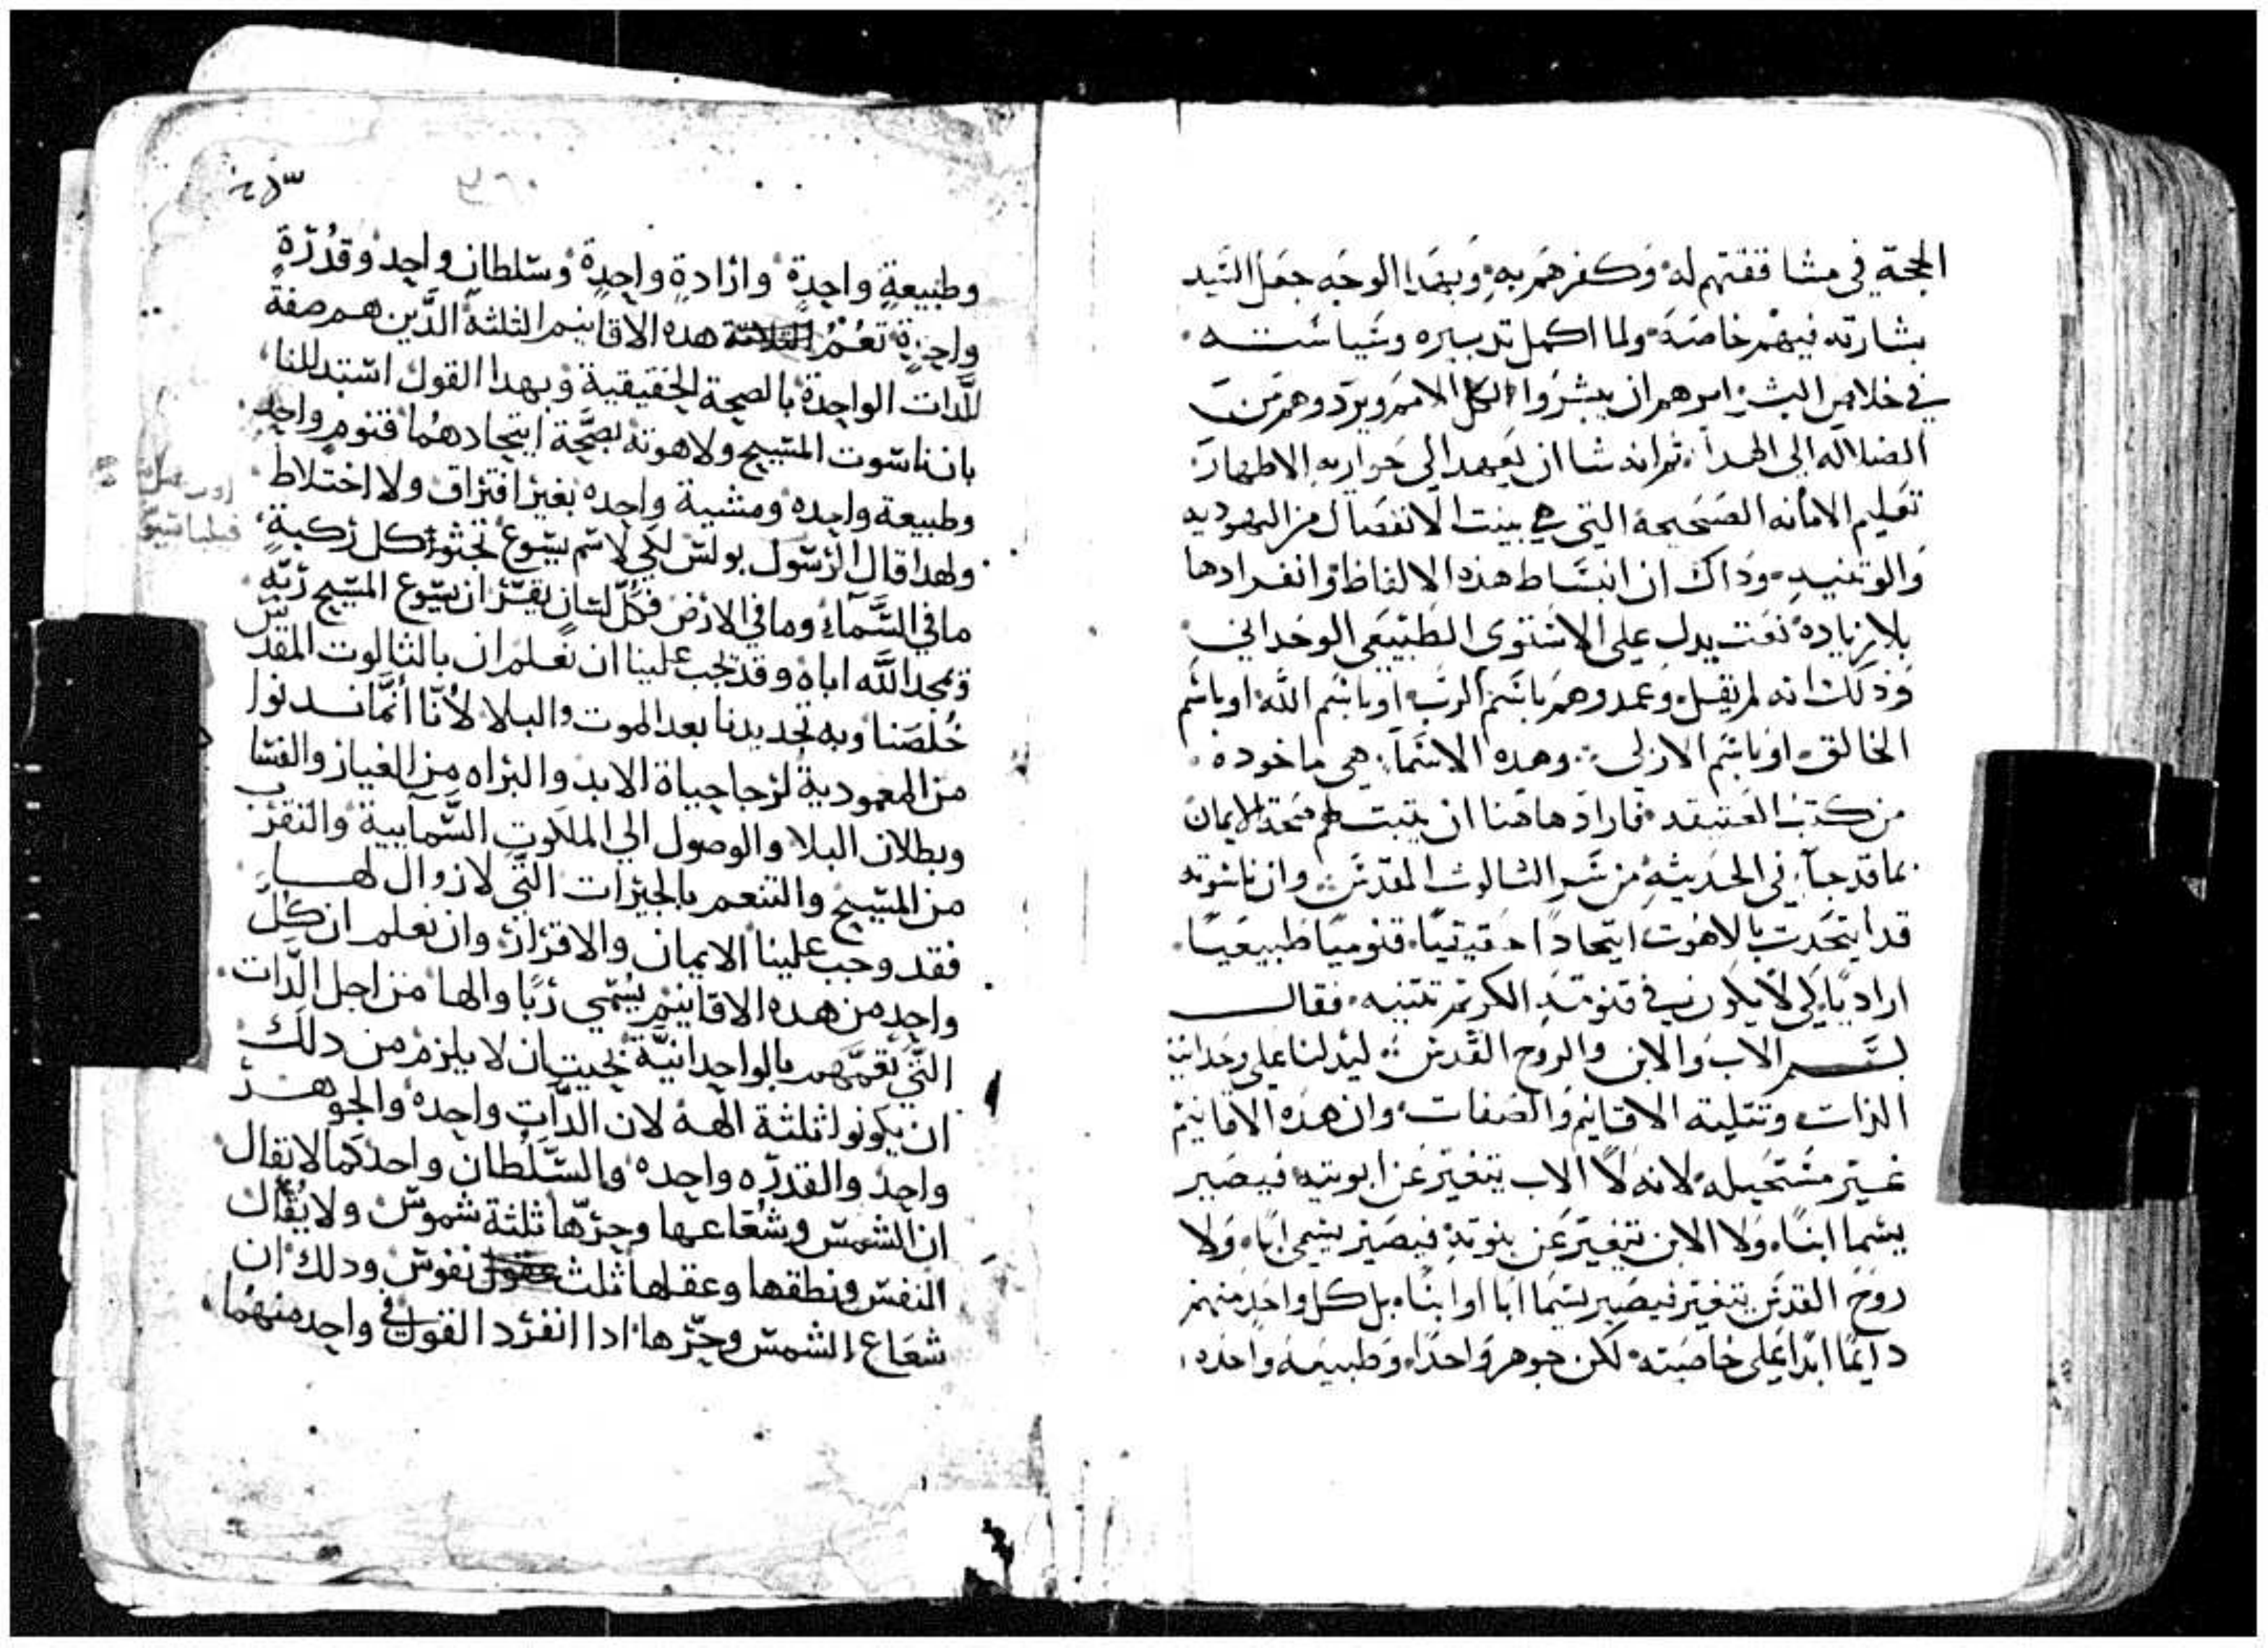 الحجة في مشاققتهم له وكفرهم به وبهدا الوجه جعل السيد
بشارته فيهم خاصة ولما اكمل تدبيره وسياسته
في خلاص البشر امرهم ان يبشروا الكل الامم ويردوهم من
الضلاله الى الهدا ثم انه شا ان يعهد الى حواريه الاطهار
تعليم الامانه الصحيحه التي هي بينت الانفصال من اليهوديه
والوتنيه وذاك ان انبساط هذه الالفاظ وانفرادها
بلا زياده نعت يدل على الاستوى الطبيعي الوحداني
وذلك انه لم يقل وعمدوهم باسم الرب او باسم الله او باسم
الخالق او باسم الازلي وهده الاسما هي ماخوده
من كتب العتيقه فاراد هاهنا ان يتبت لهم صحة الايمان
بما قد جاء في الحديثه من سر الثالوث المقدس وان ناسوته
قد ايتحدت بالاهوت ايتحادا حقيقيا قنوميا طبيعيا
اراديا لكي لا يكون في قنومه الكريم تتنيه فقال
بسم الاب والابن والروح القدس ليدلنا على وحدانية
الذات وتتليته الاقانيم والصفات وان هذه الاقانيم
غير مستحيله لانه لا الاب يتغير عن ابوتيه فيصير
يسما ابنا ولا الابن يتغير عن بنوته فيصير يسمى ابا ولا
روح القدس يتغير فيصير يسما ابا او ابنا بل كل واحد منهم
دايما ابدا على خاصته لكن جوهر واحدا وطبيعه واحده
٤٥٣
٣٦٠
وطبيعةٍ واحدةٍ وارادةٍ واحدةٍ وسلطانٍ واحدٍ وقُدرةٍ
واحدةٍ تعُمُ الثلاثة هده الاقانيم الثلثة الدين هم صفة
للدات الواحدة بالصحة الحقيقية وبهدا القول استدللنا
بان ناسوت المسيح ولاهوته بصحَّة ايتحادهُما قنومٍ واحدٍ
وطبيعة واحده ومشية واحده بغير افتراق ولا اختلاط
ولهدا قال الرسول بولس لكي لاسم يسوع تجثوا كل ركبةٍ
ما في السَّماء وما في الارض وكُلّ لسان يقرّ ان يسوع المسيح ربّه
ومجد اللَّه اباه وقد يجب علينا ان نعلم ان بالثالوت المقدس
خُلصنا وبه تجديدنا بعد الموت والبلا لأنّا انَّما ندنوا
من المعمودية لرجا حياة الابد والبراه من الغيار والفسا
وبطلان البلا والوصول الي الملكوت السَّمايية والتقرب
من المسيح والتنعم بالخيرات التّي لا زوال لها
فقد وجب علينا الايمان والاقرار وان نعلم ان كلَّ
واحدٍ من هده الاقانيم يُسَمّي ربًا والها من اجل الدَّات
التّي تعُمَّهم بالواحدانيَّة بحيت ان لا يلزم من دلك
ان يكونوا ثلثة الهة لان الدَّات واحدة والجوهر
واحدٌ والقدره واحده والسَّلُطان واحد كما لا يقال
ان الشمس وشُعاعها وحرّها ثلثة شموس ولا يُقَال
النفس ونطقها وعقلها ثلث عقول نفوس ودلك ان
شعاع الشمس وحرّها ادا انفرد القول في واحد منهما